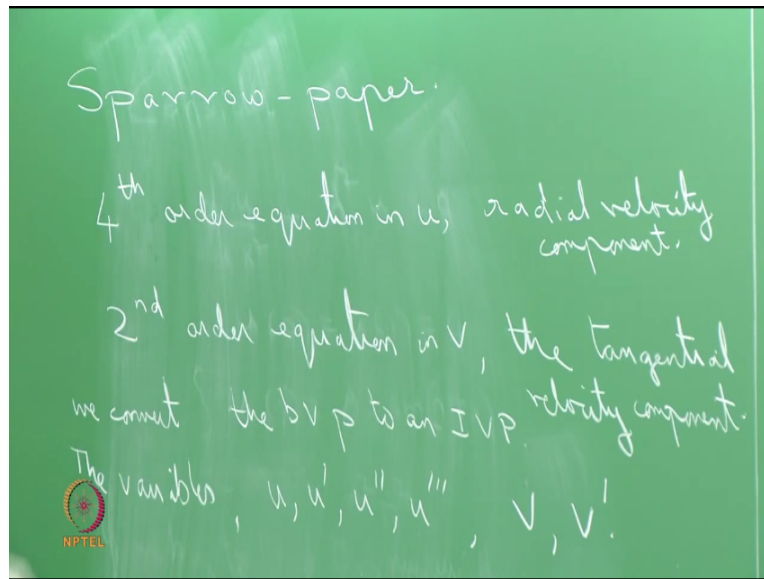 Sparrow - paper.
4th order equation in u, radial velocity
component.
2nd order equation in V, the tangential
velocity component.
we convert the bvp to an IVP.
The variables, u, u', u'', u''', V, V'.
NPTEL